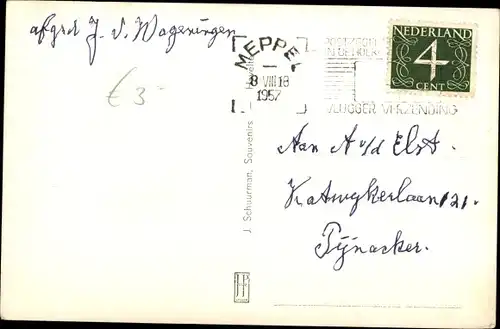 afgzdr J. v. Wageningen
€ 3-
MEPPEL
8 VIII 18
1957
VLUGGER VERZENDING
NEDERLAND
4
CENT
J. Schuurman, Souvenirs
Aan A v/d Elst.
Katwykerlaan 121.
Pijnacker.